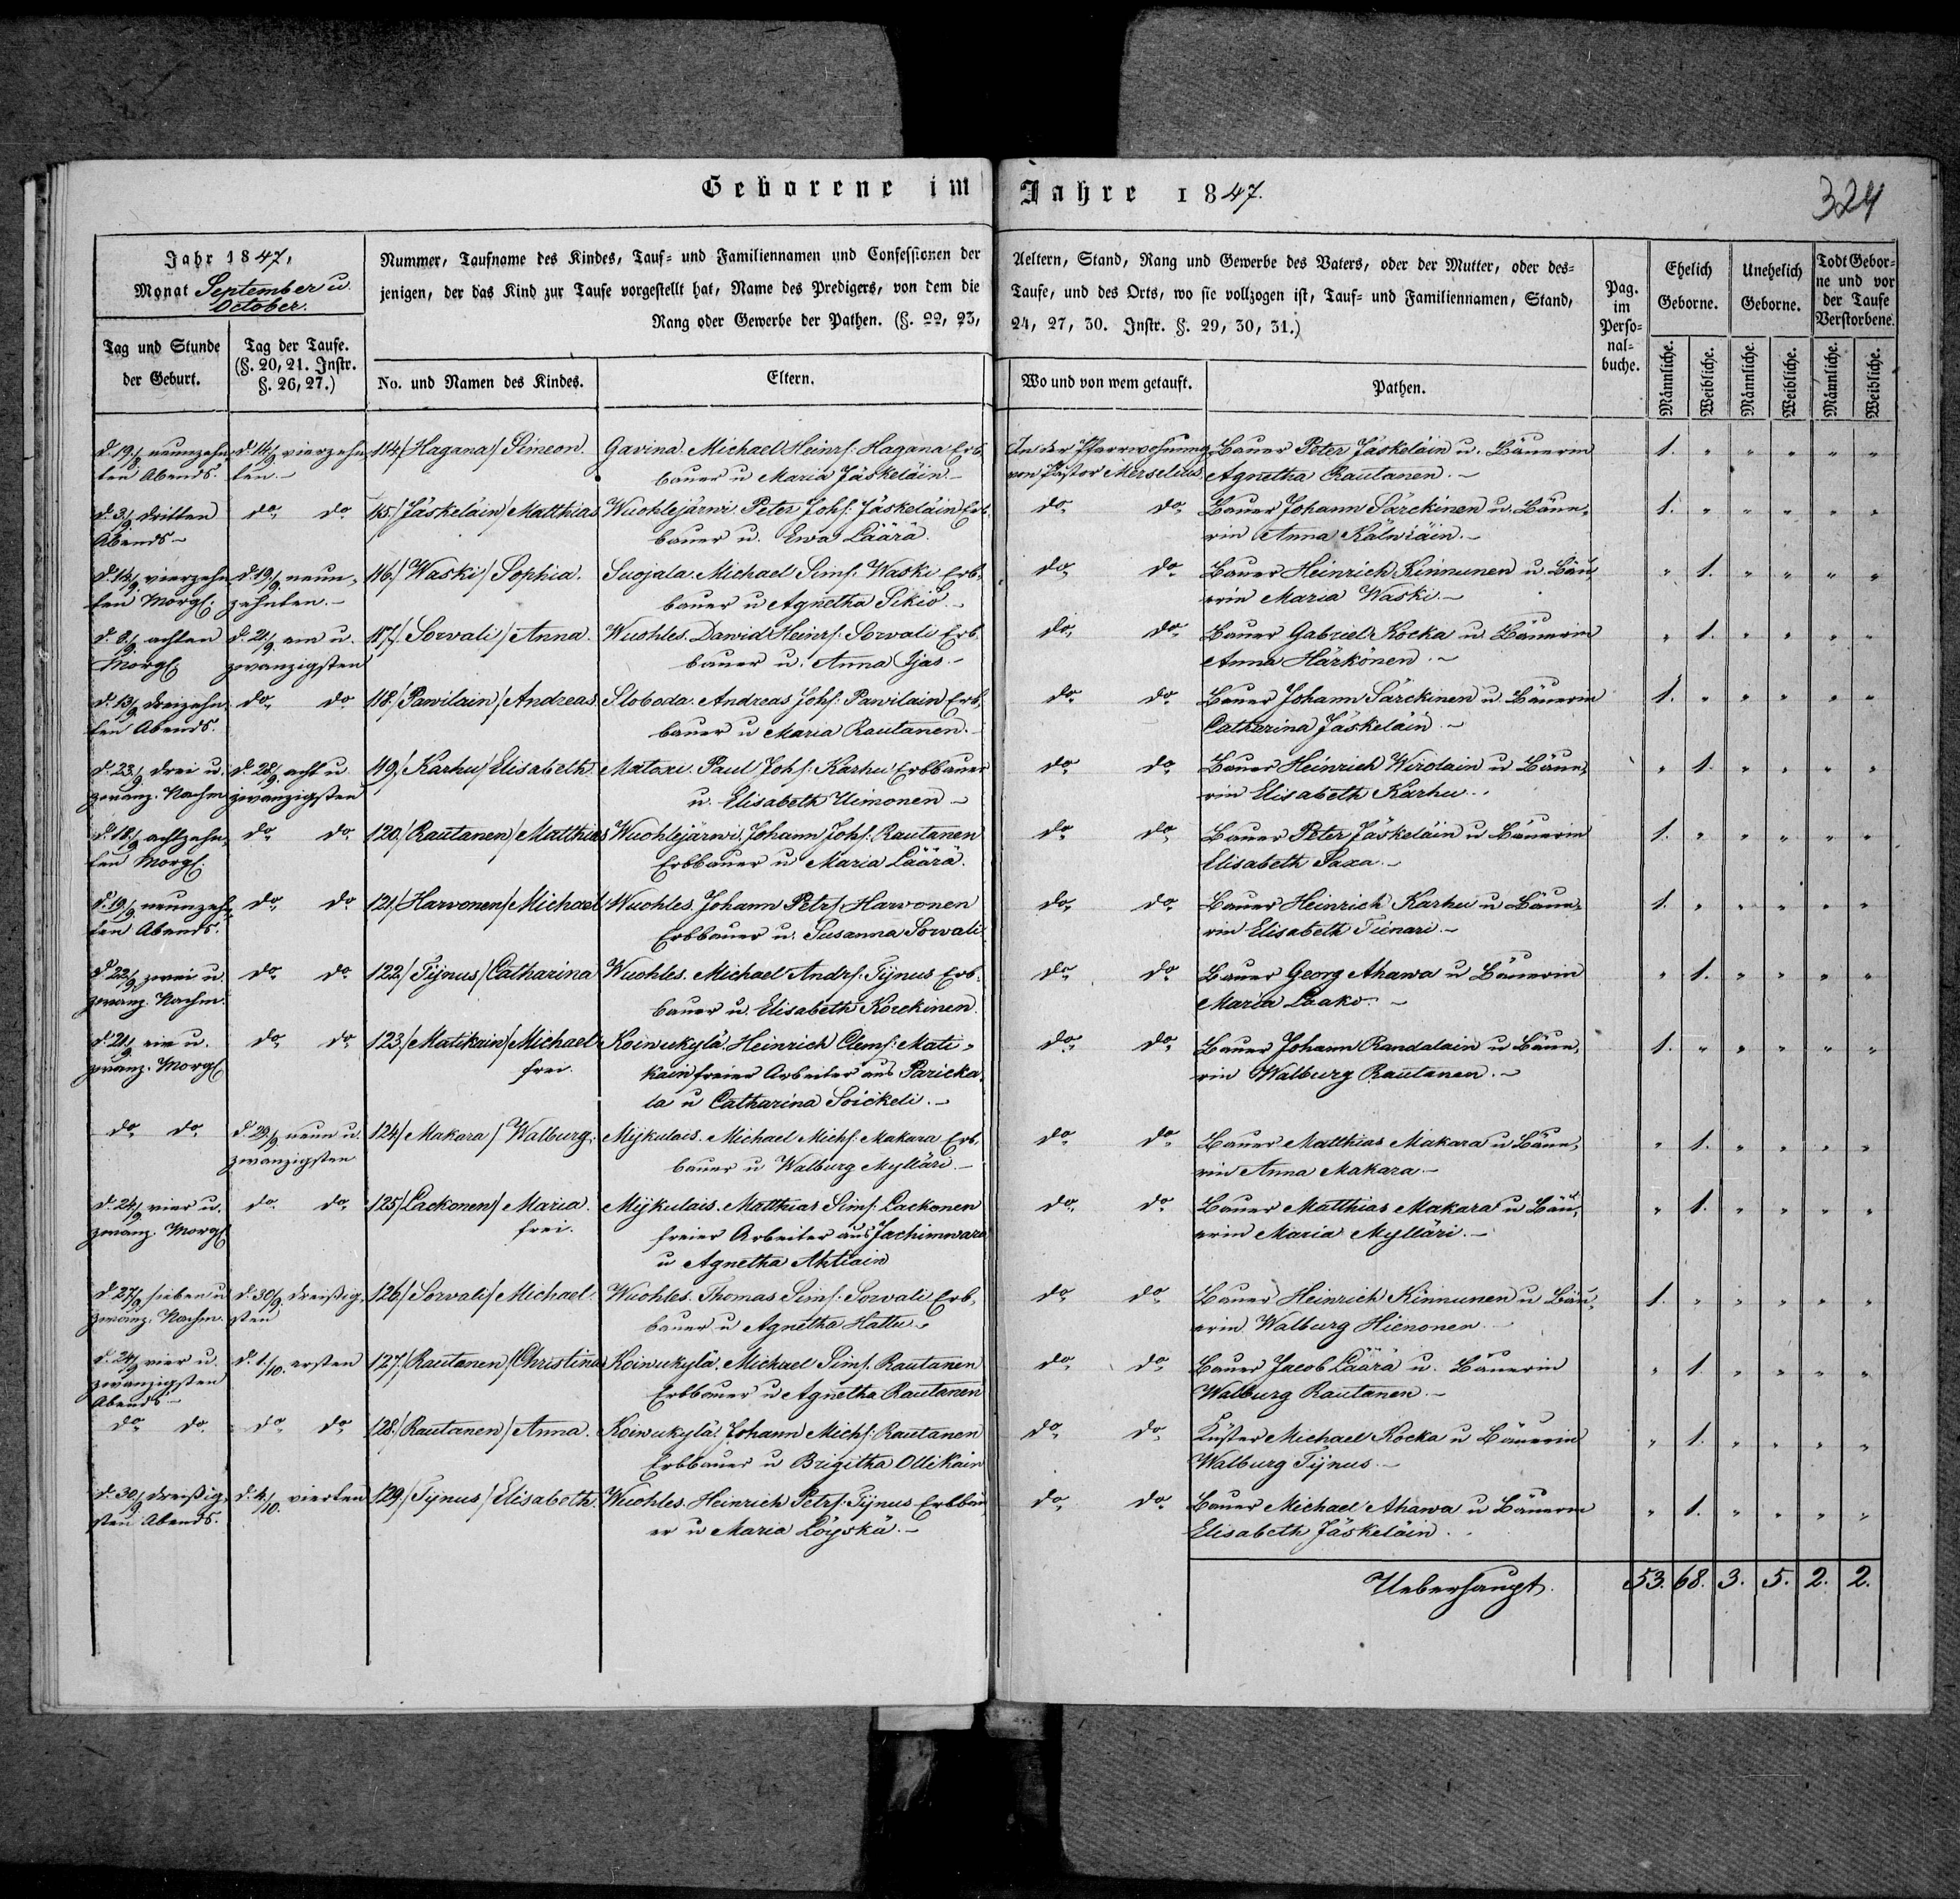 Geborene im Jahre 1847.
324
Jahr 1847,
Monat September u.
October.
Nummer, Taufname des Kindes, Tauf- und Familiennamen und Confessionen der
jenigen, der das Kind zur Taufe vorgestellt hat, Name des Predigers, von dem die
Rang oder Gewerbe der Pathen. (§. 22, 23,
Aeltern, Stand, Rang und Gewerbe des Vaters, oder der Mutter, oder des-
Taufe, und des Orts, wo sie vollzogen ist, Tauf- und Familiennamen, Stand,
24, 27, 30. Instr. §. 29, 30, 31.)
Pag.
im
Perso-
nal-
buche.
Ehelich
Geborne.
Unehelich
Geborne.
Todt Gebor-
ne und vor
der Taufe
Verstorbene.
Tag und Stunde
der Geburt.
Tag der Taufe.
(§. 20, 21. Instr.
§. 26, 27.)
No. und Namen des Kindes.
Eltern.
Wo und von wem getauft.
Pathen.
Männliche. Weibliche. Männliche. Weibliche. Männliche. Weibliche.
d. 19/8 neunzehn- d. 14/9 vierzehn- 114./ Hagana/ Simeon. Gavina. Michael Heinrs: Hagana Erb- In der Pfarrwohnung Bauer Peter Jäskeläin u. Bäuerin 1. " " " " "
ten Abends. ten. bauer u Maria Jäskeläin. von Pastor Merselius Agnetha Rautanen.
d. 3/9 dritten do do 115./ Jäskeläin/ Matthias Wuohlejärwi Peter Johs: Jäskeläin Erb- do do Bauer Johann Särckinen u. Bäue- 1. " " " " "
Abends bauer u. Ewa Läärä. rin Anna Kälwiäin.
d. 14/9 vierzehn- d. 19/9 neun- 116./ Waski/ Sophia. Suojala. Michael Sims: Waski Erb- do do Bauer Heinrich Kinnunen u. Bäu- " 1. " " " "
ten Morgs: zehnten. bauer u Agnetha Sikiö. erin Maria Waski.
d. 8/9 achten d. 21/9 ein u. 117./ Sorvali/ Anna. Wuohles. Dawid Heinrs: Sorvali Erb- do do Bauer Gabriel Kocka u. Bäuerin " 1. " " " "
Morgs zwanzigsten bauer u. Anna Ijas. Anna Härkönen.
d. 13/9 dreizehn- do do 118./ Pawilain/ Andreas. Sloboda. Andreas Johs: Pawilain Erb- do do Bauer Johann Särckinen u Bäuerin 1. " " " " "
ten Abends. bauer u Maria Rautanen. Catharina Jäskeläin.
d. 23/9 drei u. d. 28/9 acht u 119./ Karhu/ Elisabeth. Matoxi. Paul Johs: Karhu Erbbauer do do Bauer Heinrich Wirolain u Bäue- " 1. " " " "
zwanz. Nachm zwanzigsten u. Elisabeth Uimonen rin Elisabeth Karhu.
d. 18/9 achtzehn- do do 120./ Rautanen/ Matthias Wuohlejärwi, Johann Johs: Rautanen do do Bauer Peter Jäskeläin u Bäuerin 1. " " " " "
ten Morgs. Erbbauer u Maria Läärä. Elisabeth Saxa.
d. 19/9 neunzehn- do do 121./ Harvonen/ Michael Wuohles. Johann Petrs: Harvonen do do Bauer Heinrich Karhu u Bäue- 1. " " " " "
ten Abends. Erbbauer u. Susanna Sorvali. rin Elisabeth Tienari.
d. 22/9 zwei u do do 122./ Tijnus/ Catharina Wuohles. Michael Andrs: Tijnus Erb- do do Bauer Georg Ahawa u Bäuerin " 1. " " " "
zwanz. Nachm. bauer u. Elisabeth Korckinen. Maria Laako.
d. 21/9 ein u. do do 123./ Matikain/ Michael Koiwukylä. Heinrich Clems: Mati- do do Bauer Johann Randalain u Bäue- 1. " " " " "
zwanz. Morgs. frei. kain freier Arbeiter aus Paricka- rin Walburg Rautanen.
la u Catharina Soickeli.
do do d 29/9 neun u. 124./ Makara/ Walburg. Mijkulais. Michael Michs: Makara Erb- do do Bauer Matthias Makara u Bäue- " 1. " " " "
zwanzigsten bauer u Walburg Mylläri. rin Anna Makara
d. 24/9 vier u. do do 125./ Lackonen/ Maria. Mijkulais. Matthias Sims: Lackonen do do Bauer Matthias Makara u Bäu- " 1. " " " "
zwanz. Morgs. frei. freier Arbeiter aus Jachimwara erin Maria Mylläri.
u Agnetha Ahtiain
d 27/9 sieben u d. 30/9 dreißig- 126./ Sorvali/ Michael. Wuohles. Thomas Sims: Sorvali Erb- do do Bauer Heinrich Kinnunen u Bäu- 1. " " " " "
zwanz. Nachm. sten bauer u Agnetha Hattu. erin Walburg Hienonen
d. 24/9 vier u. d. 1/10. ersten 127./ Rautanen/ Christina Koiwukylä. Michael Sims. Rautanen do do Bauer Jacob Läärä u. Bäuerin " 1. " " " "
zwanzigsten Erbbauer u Agnetha Rautanen Walburg Rautanen
Abends.
do do do do 128./ Rautanen/ Anna. Koiwukylä. Johann Michs: Rautanen do do Küster Michael Kocka u Bäuerin " 1. " " " "
Erbbauer u Brigitha Ollikain Walburg Tijnus.
d. 30/9 dreißig- d. 4/10. vierten 129./ Tijnus/ Elisabeth. Wuohles. Heinrich Petrs: Tijnus Erbbau- do do Bauer Michael Ahawa u Bäuerin " 1. " " " "
sten Abends. er u Maria Löyskä. Elisabeth Jäskeläin.
Ueberhaupt. 53. 68. 3. 5. 2. 2.